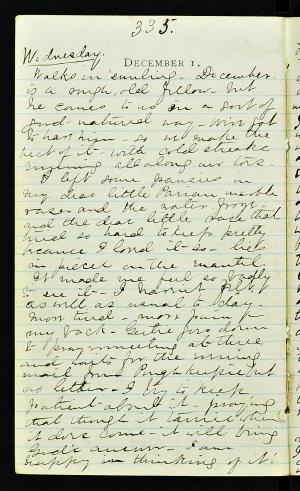 335.
Wednesday.
DECEMBER 1.
Walks in smiling - December
is a rough, old fellow - but
he comes to us in a sort of
good natured way - Wont pat
so we make the
best of it - with cold streaks
all along our
I left some pansies in
my dear little Parian marble
vase - and the water froze -
and the dear little vase that
tried so hard to keep pretty
because I loved it - so - lies
in pieces on the mantel
It made me feel so badly
to see it - I havnt felt
as well as usual to day -
More tired - more pain in
my back - Gertie goes down
to praymeeting at three
and waits for the evening
mail from Pughkeepsie but
no letter - I try to keep
patient about it praying
that though it tarries when
it does come - it will bring
God's answer - I am
happy in thinking of it!